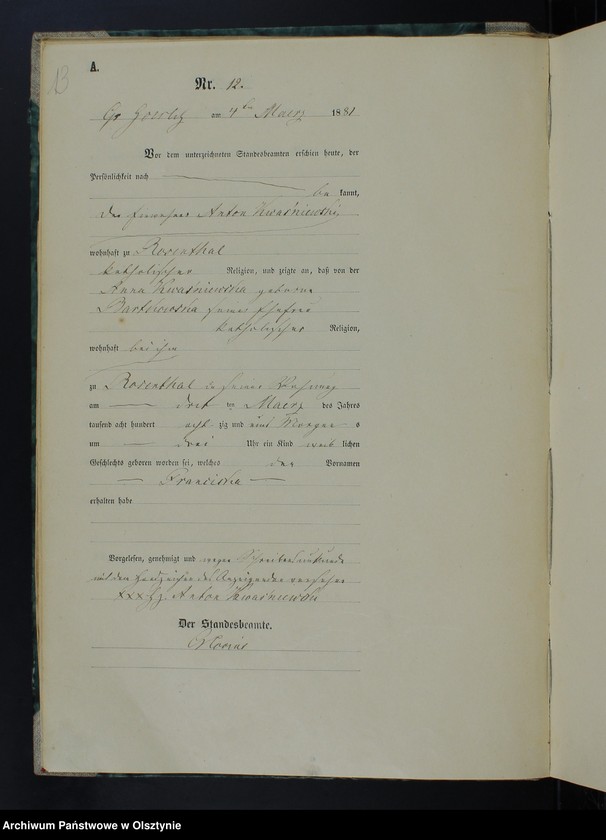 13
A.
Nr. 12.
am 4ten Maerz 1881
Vor dem unterzeichneten Standesbeamten erschien heute, der
Persönlichkeit nach
be kannt,
der Anton Kwasniewski
wohnhaft zu Rosenthal
katholischer Religion, und zeigte an, daß von der
Anna Kwasniewska geborene
seiner Ehefrau
katholischer Religion,
wohnhaft bei ihm
zu Rosenthal in seiner Wohnung
am drei ten Maerz des Jahres
tausend acht hundert acht zig und eins Morgen s
um drei Uhr ein Kind weib lichen
Geschlechts geboren worden sei, welches den Vornamen
Franciska
erhalten habe
Vorgelesen, genehmigt und wegen Schreibensunkunde
mit dem Handzeichen des Anzeigenden versehen
xxx Hz. Anton Kwasniewski
Der Standesbeamte.
Archiwum Państwowe w Olsztynie